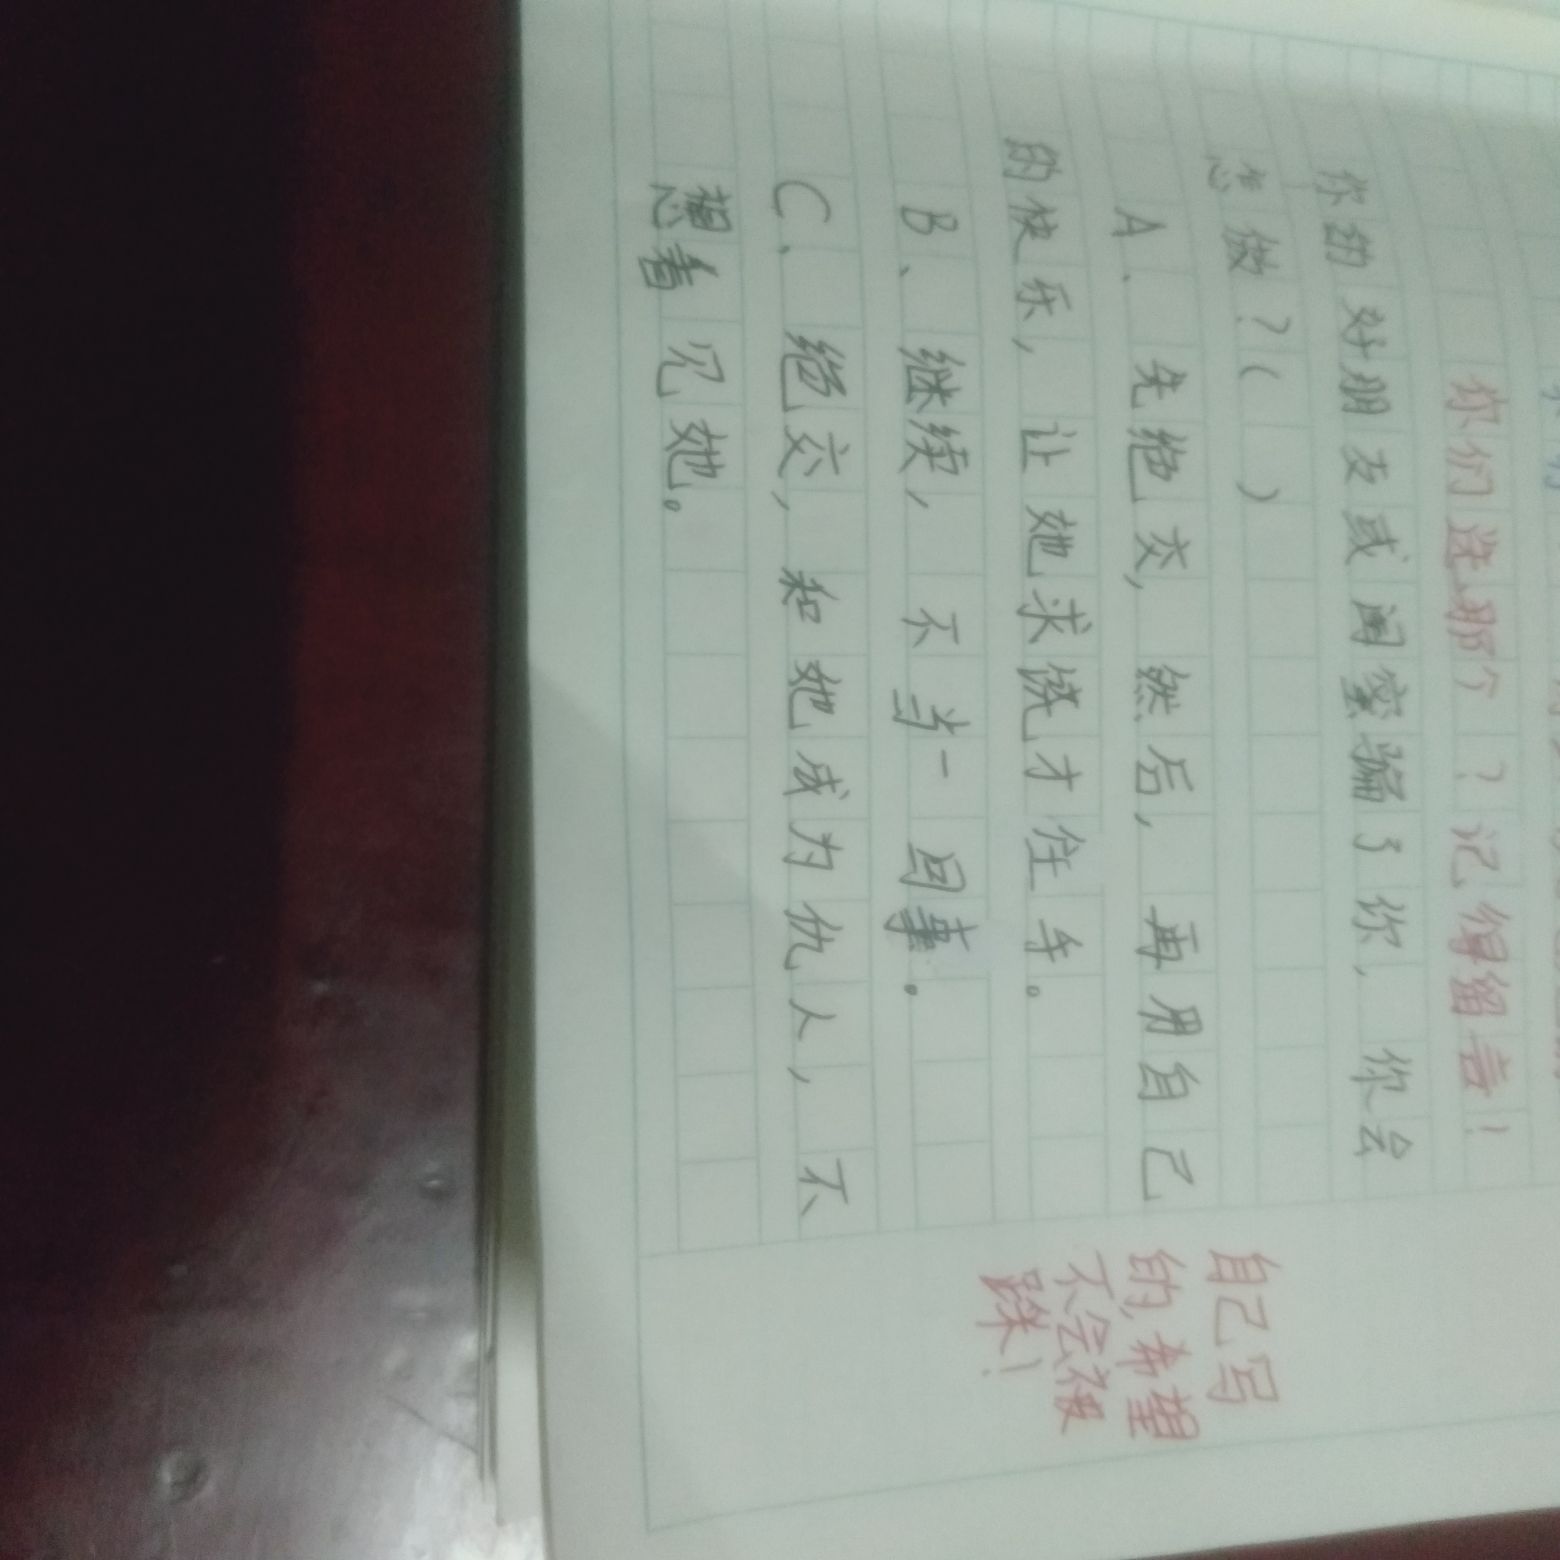 你们选那个？记得留言！
你的好朋友或闺蜜骗了你，你会
怎做？（ ）
A、先绝交，然后，再用自己
的快乐，让她求饶才住手。
B、继续，不当一回事。
C、绝交，和她成为仇人，不
想看见她。
自己写
的，希望
不会被
踩！